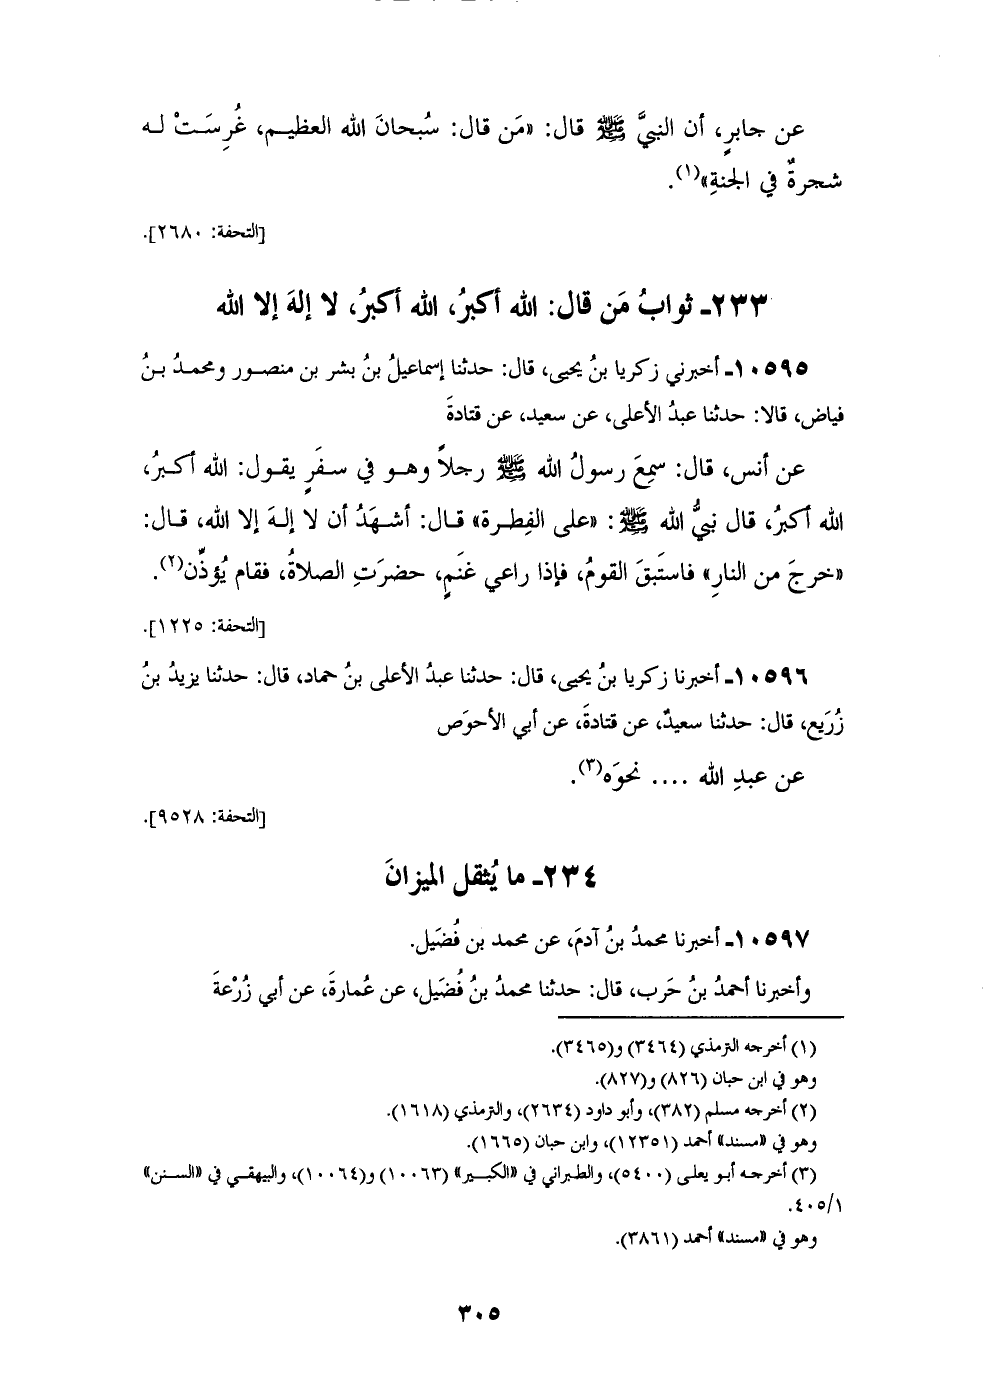 عن جابرٍ، أن النبيَّ ﷺ قال: «مَن قال: سُبحانَ الله العظيم، غُرِسَتْ له
شجرةٌ في الجنةِ»(١).
[التحفة: ٢٦٨٠].
٢٣٣ـ ثوابُ مَن قال: الله أكبرُ، الله أكبرُ، لا إلهَ إلا الله
١٠٥٩٥ـ أخبرني زكريا بنُ يحيى، قال: حدثنا إسماعيلُ بنُ بشر بن منصور ومحمدُ بنُ
فياض، قالا: حدثنا عبدُ الأعلى، عن سعيد، عن قتادةَ
عن أنس، قال: سمِعَ رسولُ الله ﷺ رجلاً وهو في سفَرٍ يقول: الله أكبرُ،
الله أكبرُ، قال نبيُّ الله ﷺ: «على الفِطرة» قال: أشهَدُ أن لا إلهَ إلا الله، قال:
«خرجَ من النارِ» فاستَبقَ القومُ، فإذا راعي غنَمٍ، حضرَتِ الصلاةُ، فقام يُؤذِّن(٢).
[التحفة: ١٢٢٥].
١٠٥٩٦ـ أخبرنا زكريا بنُ يحيى، قال: حدثنا عبدُ الأعلى بنُ حماد، قال: حدثنا يزيدُ بنُ
زُرَيع، قال: حدثنا سعيدٌ، عن قتادةَ، عن أبي الأحوَص
عن عبدِ الله .... نحوَه(٣).
[التحفة: ٩٥٢٨].
٢٣٤ـ ما يُثقل الميزانَ
١٠٥٩٧ـ أخبرنا محمدُ بنُ آدمَ، عن محمد بن فُضَيل.
وأخبرنا أحمدُ بنُ حَرب، قال: حدثنا محمدُ بنُ فُضَيل، عن عُمارةَ، عن أبي زُرْعةَ
(١) أخرجه الترمذي (٣٤٦٤) و(٣٤٦٥).
وهو في ابن حبان (٨٢٦) و(٨٢٧).
(٢) أخرجه مسلم (٣٨٢)، وأبو داود (٢٦٣٤)، والترمذي (١٦١٨).
وهو في «مسند» أحمد (١٢٣٥١)، وابن حبان (١٦٦٥).
(٣) أخرجه أبو يعلى (٥٤٠٠)، والطبراني في «الكبير» (١٠٠٦٣) و(١٠٠٦٤)، والبيهقي في «السنن»
٤٠٥/١.
وهو في «مسند» أحمد (٣٨٦١).
٣٠٥